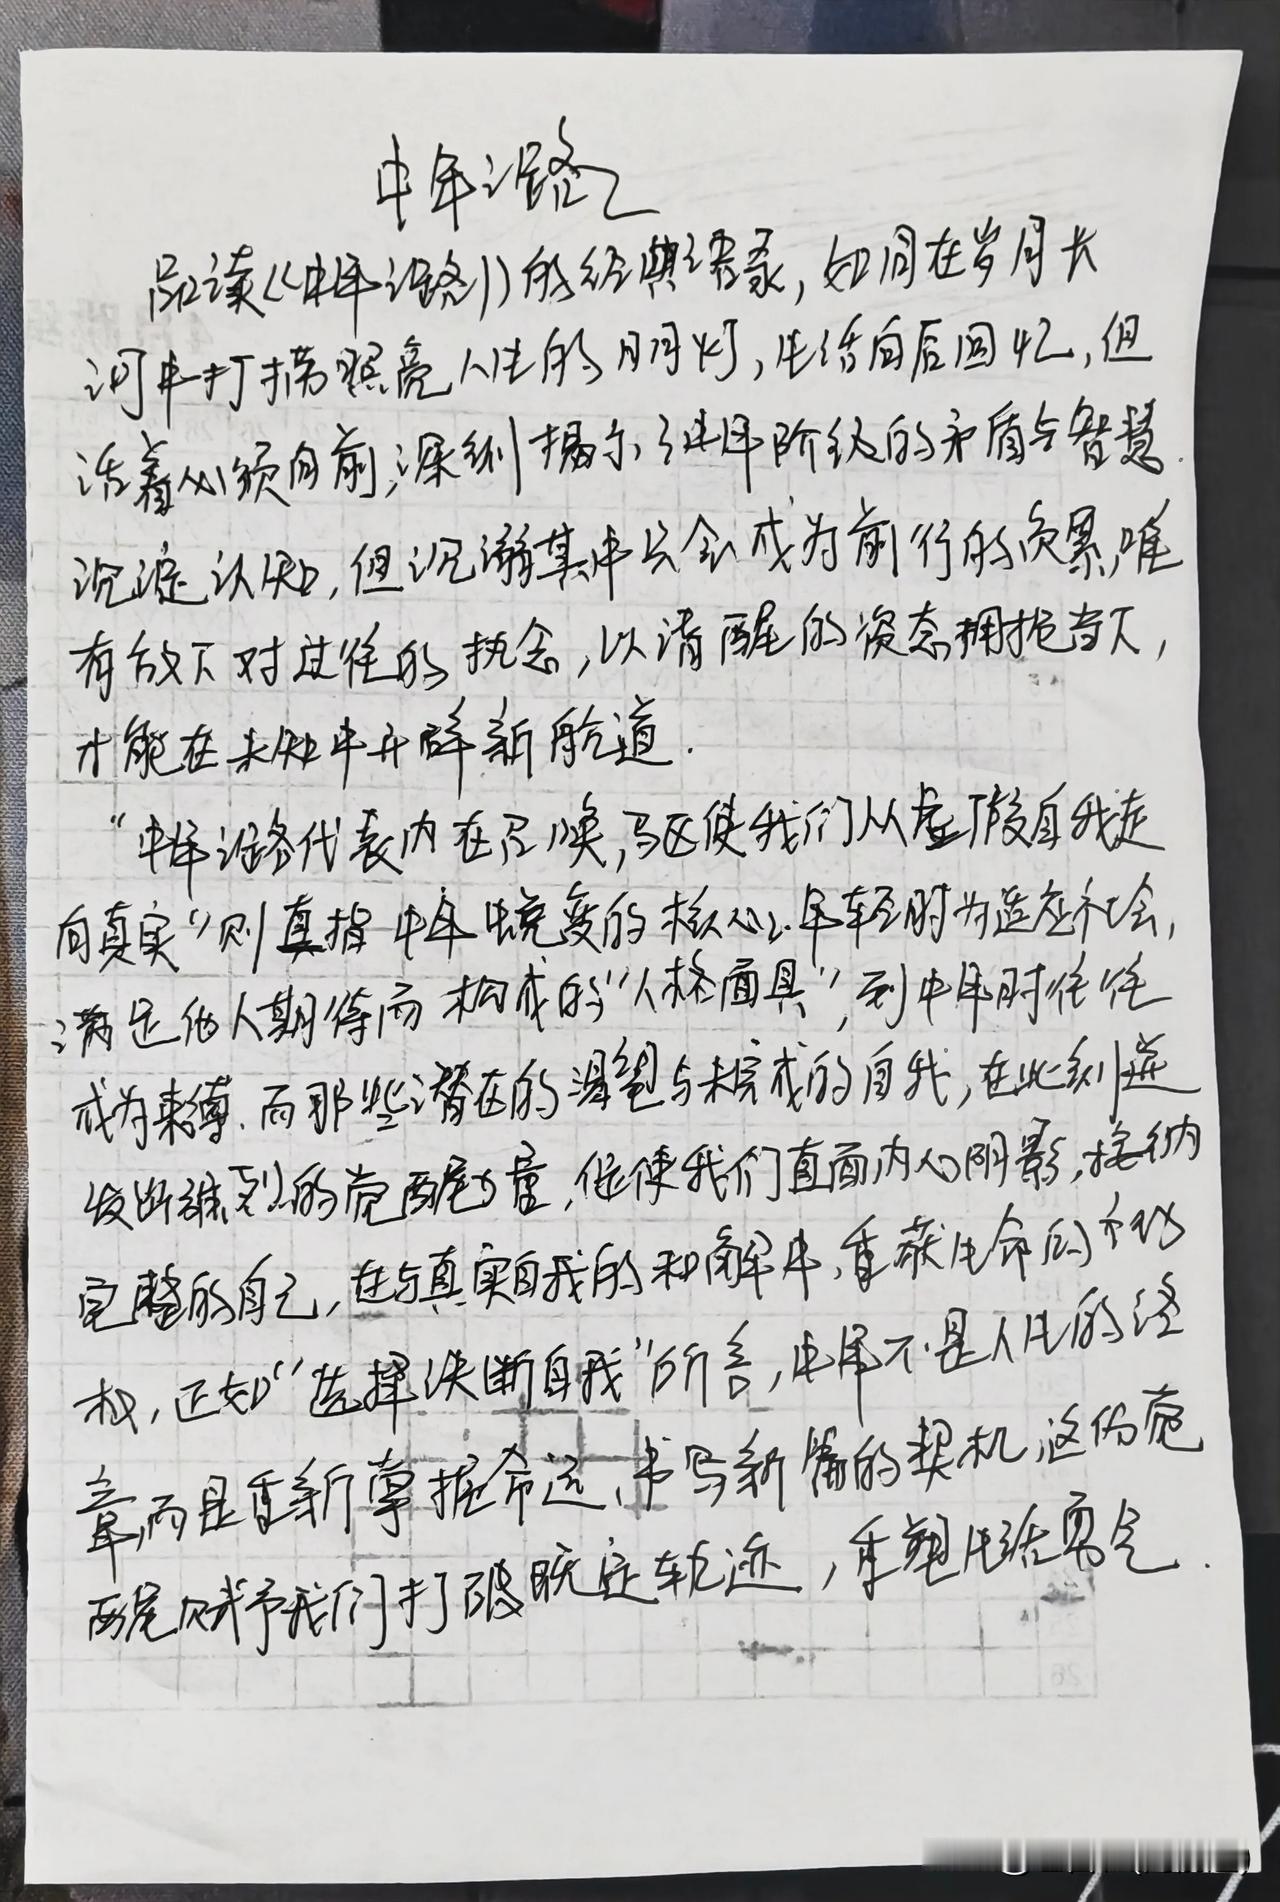 中年之路
品读《中年之路》的经典语录，如同在岁月长
河中打捞照亮人生的明灯，生活向后回忆，但
活着必须向前，深刻揭示了中年阶段的矛盾与智慧.
沉淀认知，但沉溺其中只会成为前行的负累，唯
有放下对过往的执念，以清醒的姿态拥抱当下，
才能在未知中开辟新航道.
“中年之路代表内在召唤，驱使我们从虚假自我走
向真实”则直指中年蜕变的核心.年轻时为适应社会，
满足他人期待而构成的“人格面具”，到中年时往往
成为束缚.而那些潜在的渴望与未完成的自我，在此刻迸
发出强烈的觉醒力量，促使我们直面内心阴影，接纳
完整的自己，在与真实自我的和解中，重获生命的
权，正如“选择决断自我”所言，中年不是人生的终
章，而是重新掌握命运、书写新篇的契机 这份觉
醒赋予我们打破既定轨迹，重塑生活勇气.